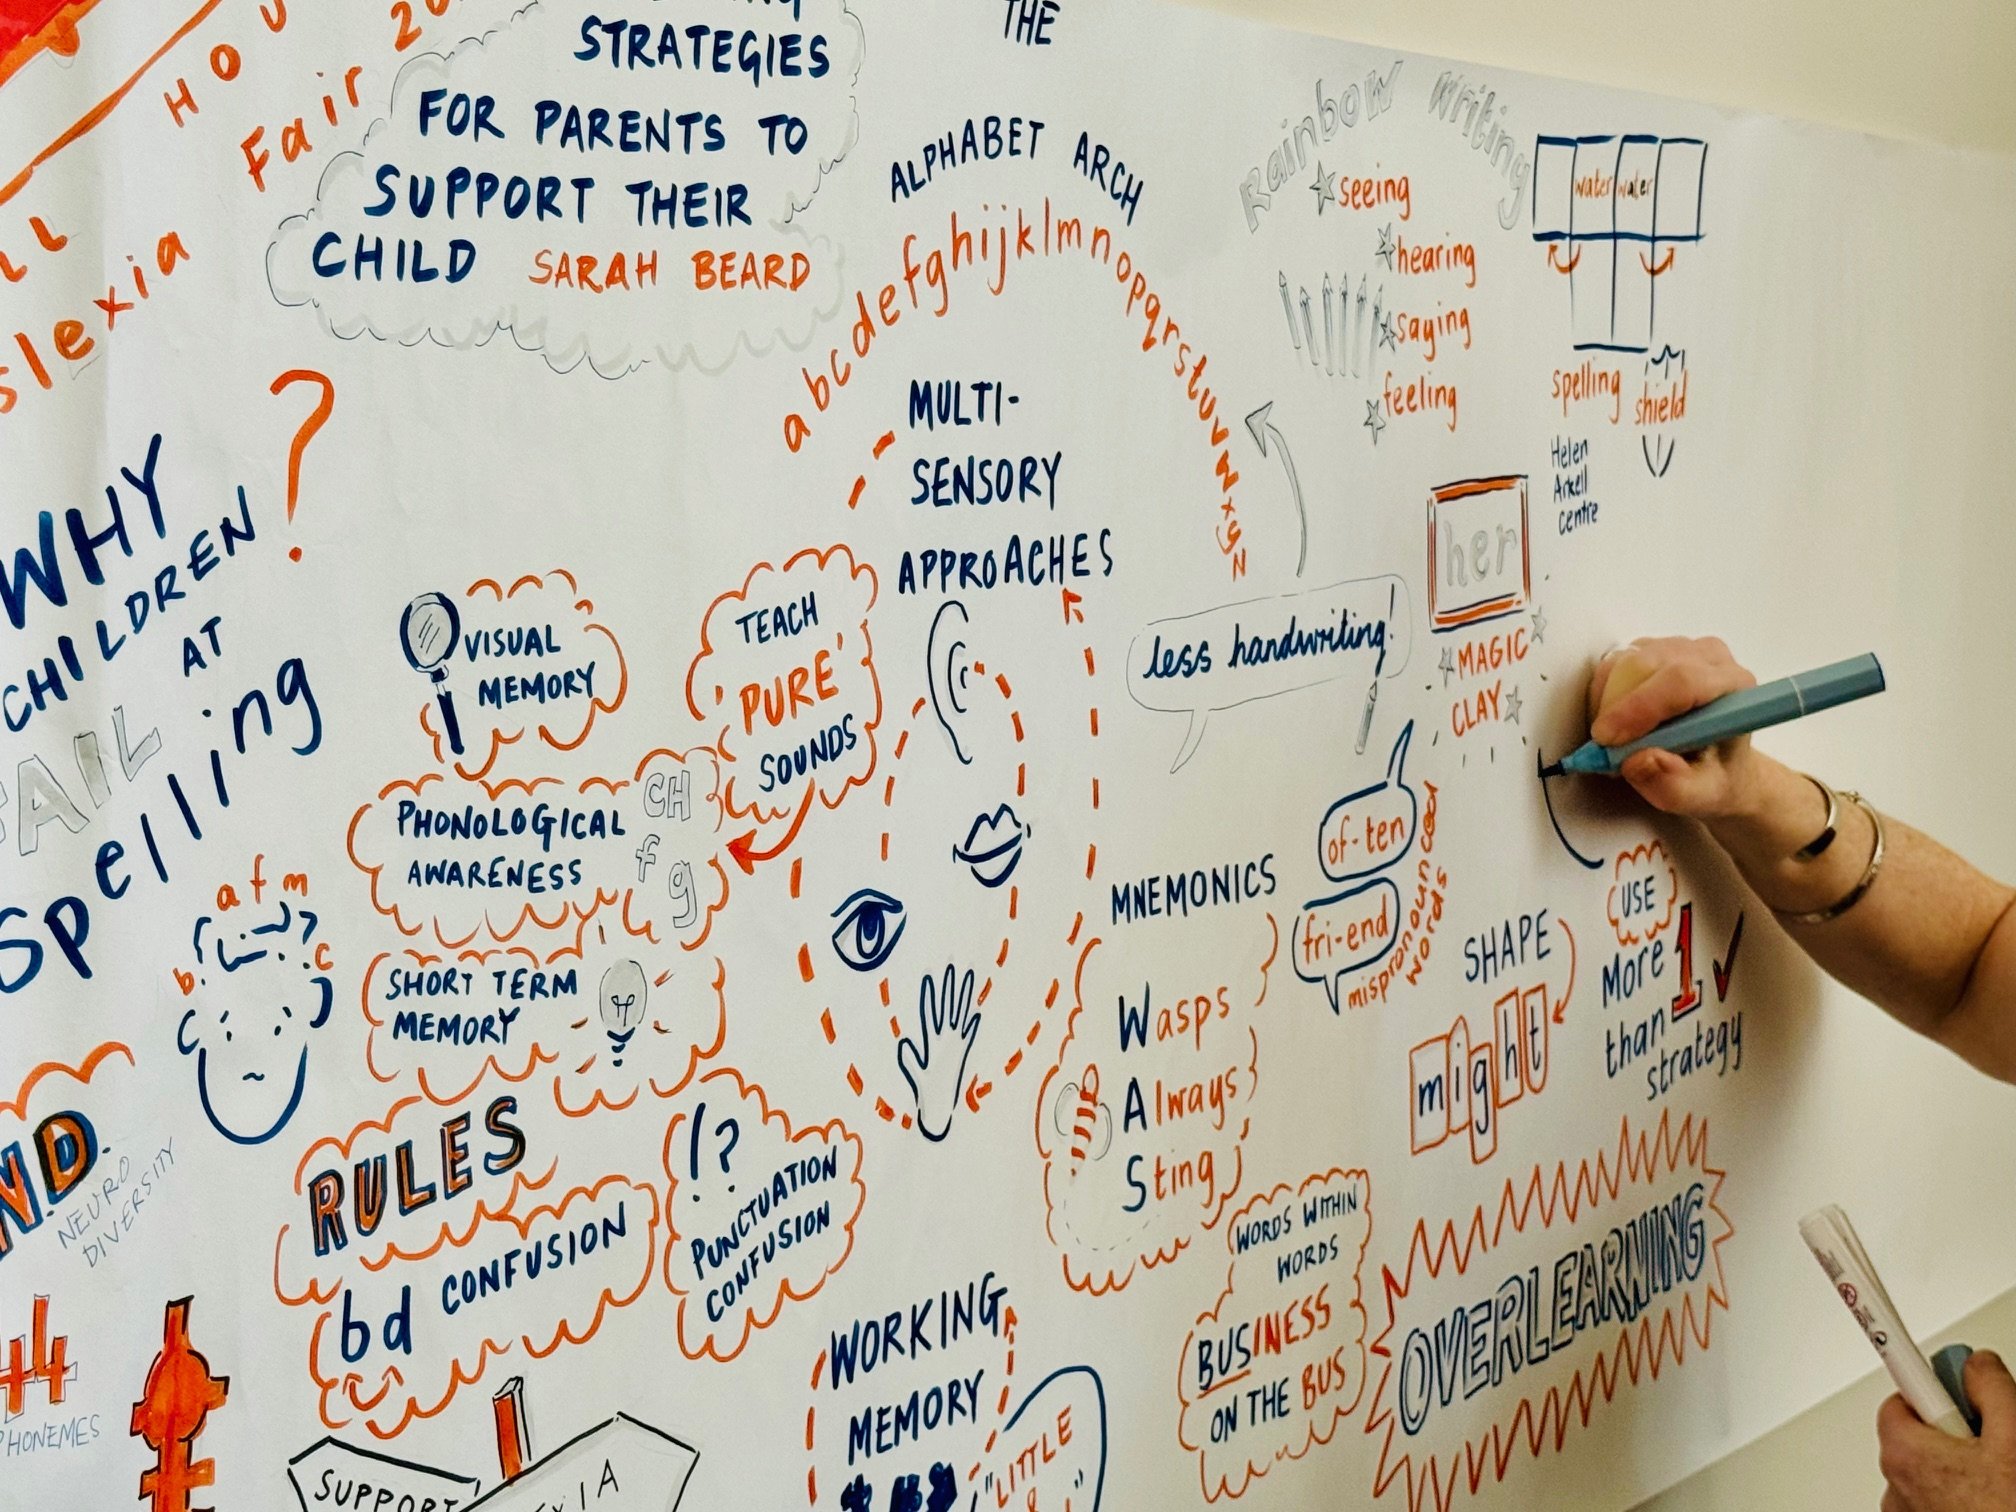 THE
STRATEGIES
FOR PARENTS TO
SUPPORT THEIR
CHILD SARAH BEARD
Fair
WHY
CHILDREN
AT
spelling
?
a f m
b
c
NEURO
DIVERSITY
44
PHONEMES
VISUAL
MEMORY
TEACH
'PURE'
SOUNDS
PHONOLOGICAL
AWARENESS
CH
f
g
SHORT TERM
MEMORY
RULES
bd CONFUSION
!?
PUNCTUATION
CONFUSION
SUPPORT
ALPHABET ARCH
abcdefghijklmnopqrstuvwxyz
MULTI-
SENSORY
APPROACHES
less handwriting!
Rainbow Writing
seeing
hearing
saying
feeling
water water
spelling
shield
Helen
Arkell
Centre
her
MAGIC
CLAY
MNEMONICS
Wasps
Always
Sting
of-ten
fri-end
mispronounced
words
SHAPE
might
USE
More
than 1
strategy
WORDS WITHIN
WORDS
BUSINESS
ON THE BUS
OVERLEARNING
WORKING
MEMORY
"LITTLE